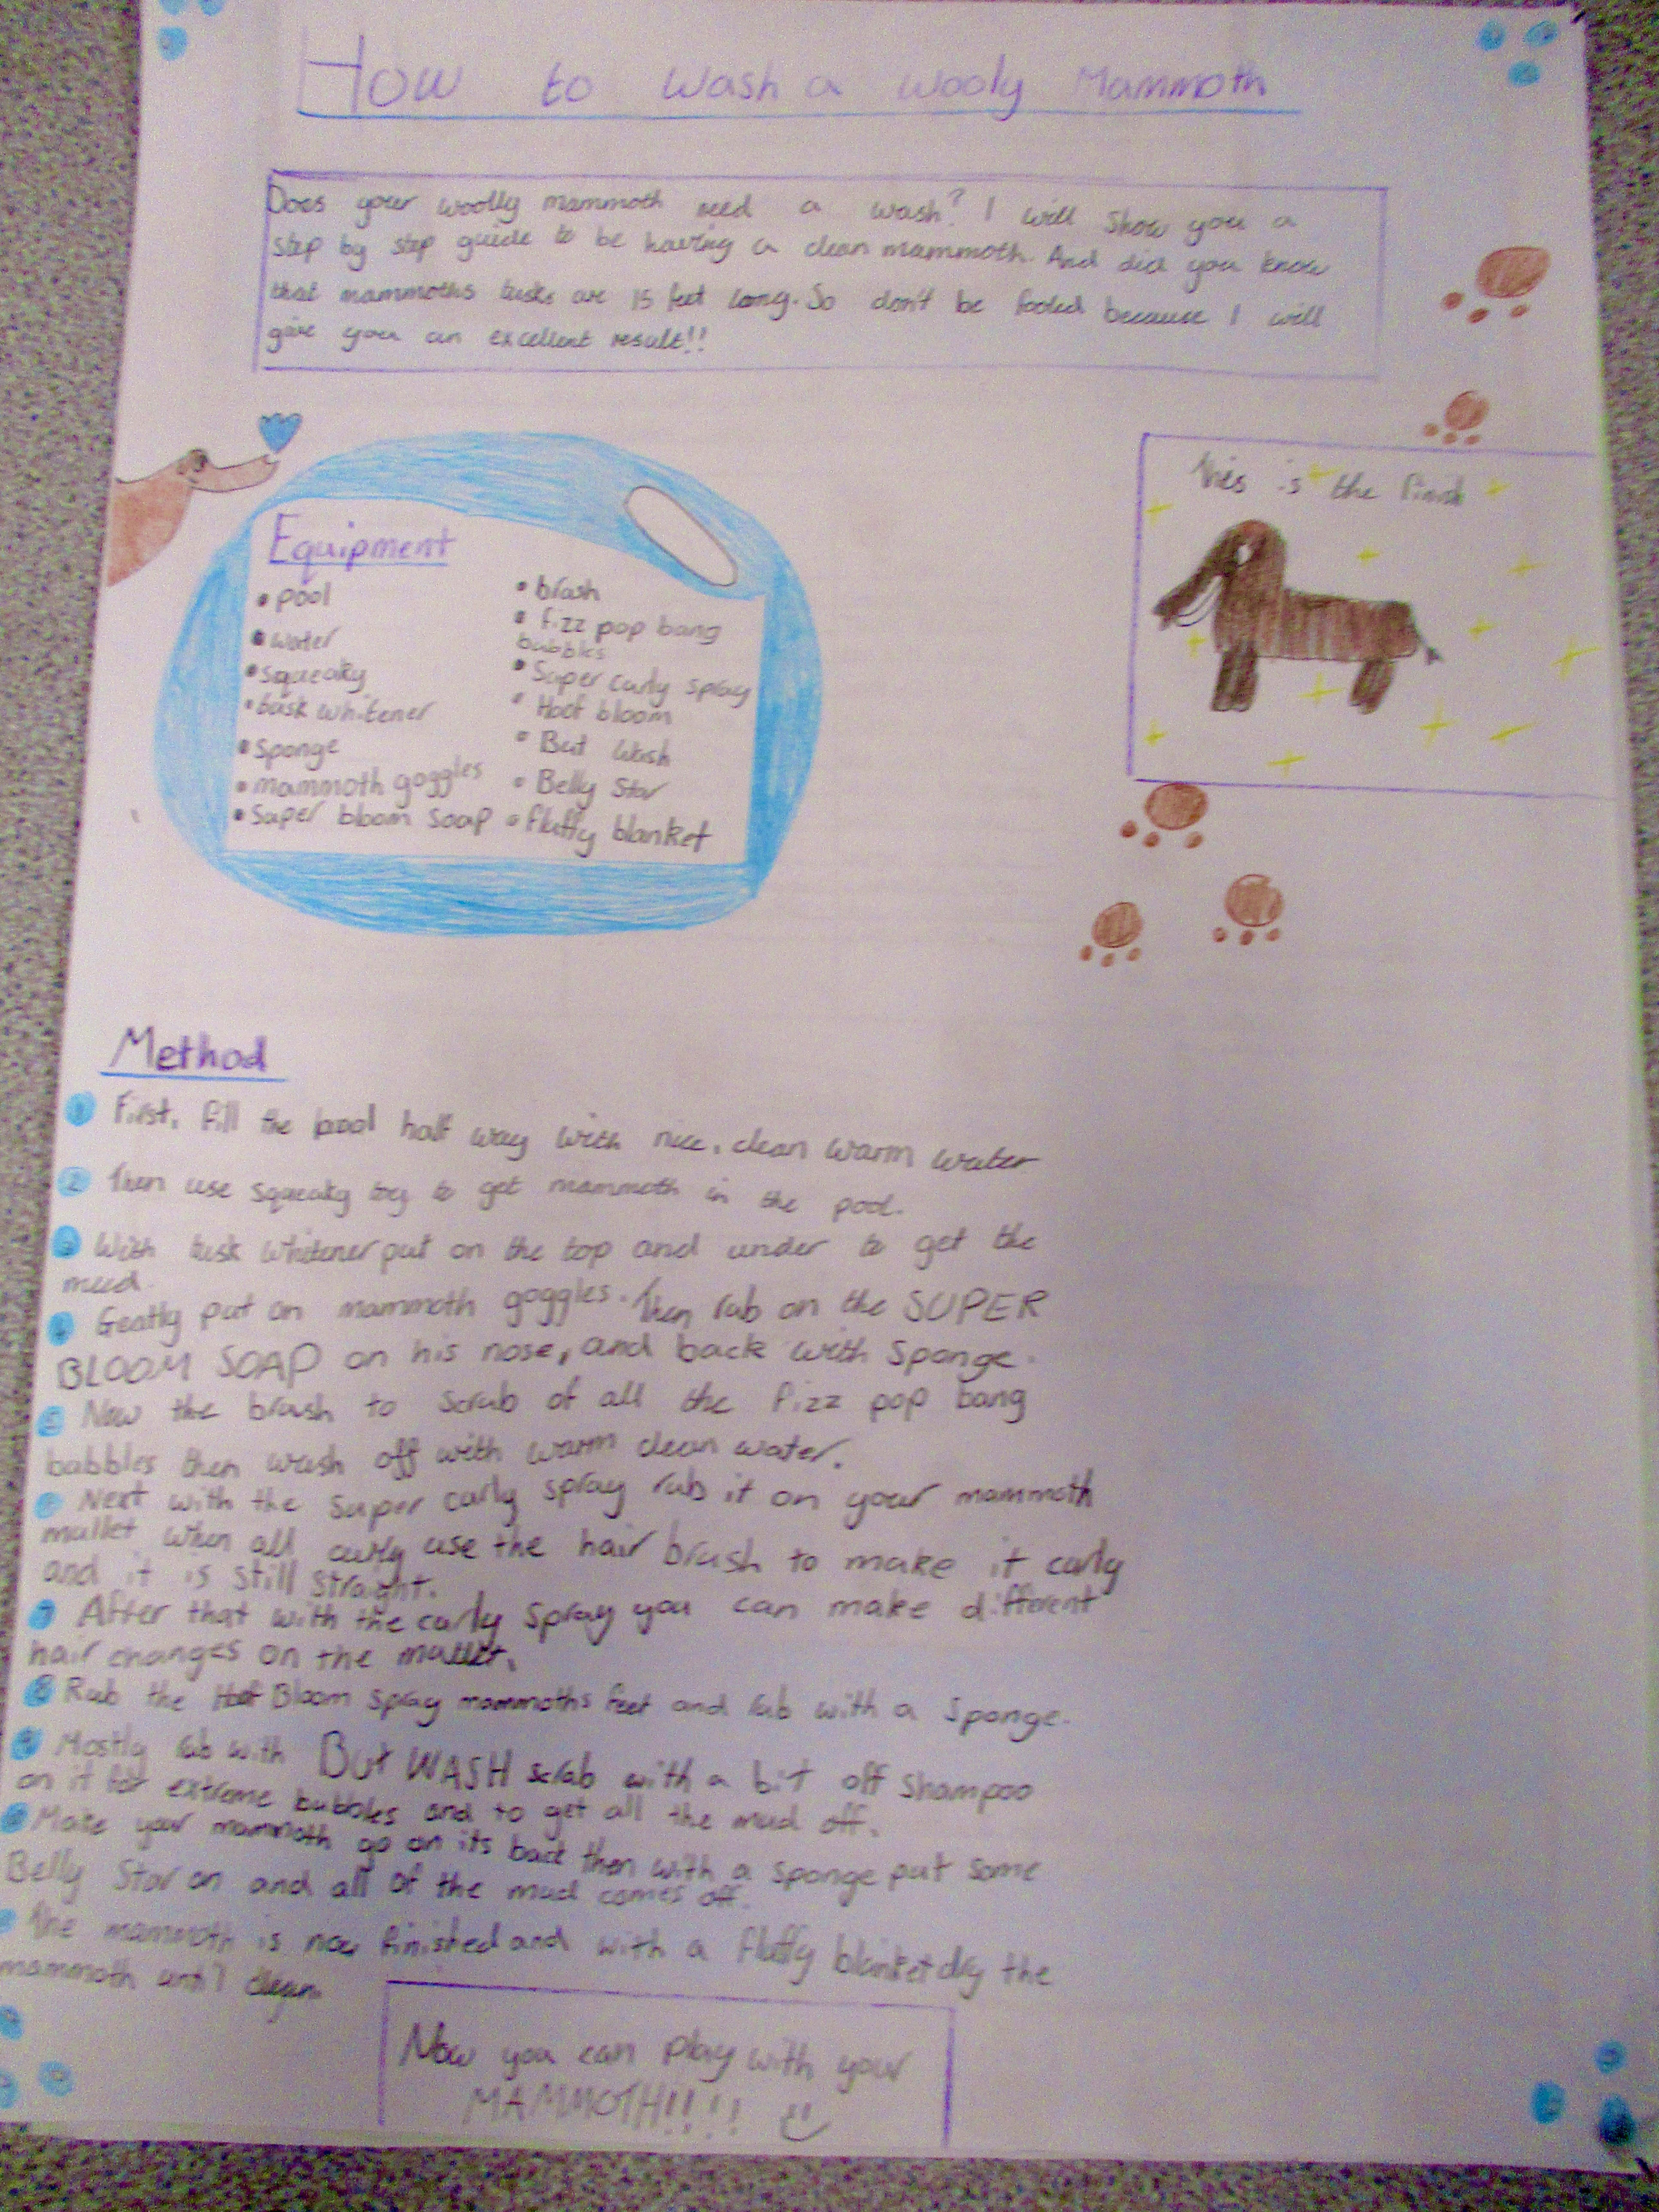 How to wash a wooly Mammoth
Does your woolly mammoth need a wash? I will show you a
step by step guide to be having a clean mammoth. And did you know
that mammoths tusks are 15 feet long. So don't be fooled because I will
give you an excellent result!!
Equipment
• pool
• water
• squeaky
• tusk whitener
• sponge
• mammoth goggles
• super bloom soap
• brush
• fizz pop bang
bubbles
• Super curly spray
• Hoof bloom
• But wash
• Belly Star
• fluffy blanket
this is the
Method
1 First, fill the pool half way with nice, clean warm water
2 Then use squeaky toy to get mammoth in the pool.
3 With tusk whitener put on the top and under to get the
mud.
4 Gently put on mammoth goggles. Then rub on the SUPER
BLOOM SOAP on his nose, and back with sponge.
5 Now the brush to scrub of all the fizz pop bang
bubbles then wash off with warm clean water.
Next with the super curly spray rub it on your mammoth
mullet when all curly use the hair brush to make it curly
and it is still straight.
7 After that with the curly spray you can make different
hair changes on the mullet.
8 Rub the Hoof Bloom spray mammoths feet and rub with a sponge.
9 Mostly rub with But WASH scrub with a bit off shampoo
on it for extreme bubbles and to get all the mud off.
Make your mammoth go on its back then with a sponge put some
Belly Star on and all of the mud comes off.
The mammoth is now finished and with a fluffy blanket dry the
mammoth until clean
Now you can play with your
MAMMOTH!!!!